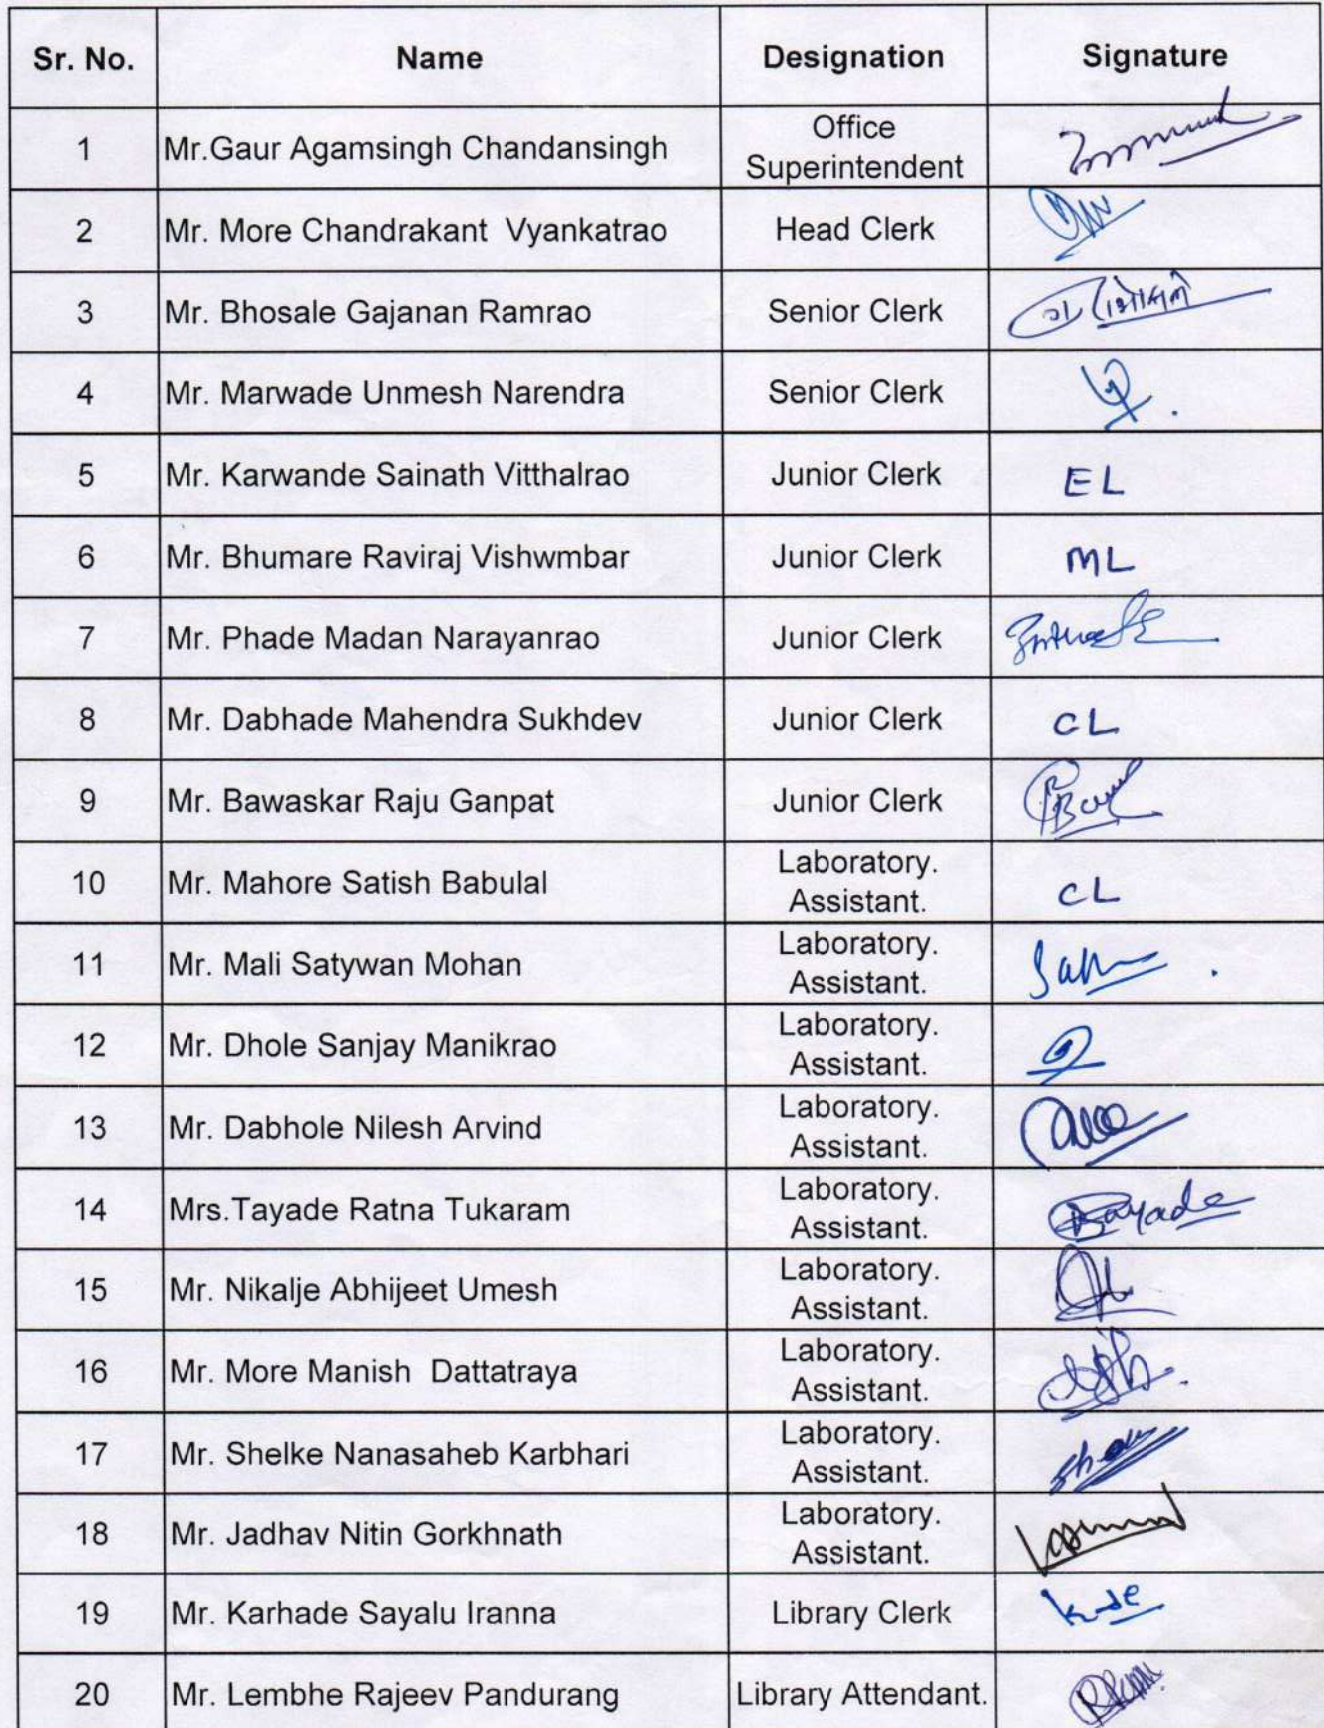 Sr. No. Name Designation Signature
1 Mr.Gaur Agamsingh Chandansingh Office Superintendent
2 Mr. More Chandrakant Vyankatrao Head Clerk
3 Mr. Bhosale Gajanan Ramrao Senior Clerk
4 Mr. Marwade Unmesh Narendra Senior Clerk
5 Mr. Karwande Sainath Vitthalrao Junior Clerk EL
6 Mr. Bhumare Raviraj Vishwmbar Junior Clerk ML
7 Mr. Phade Madan Narayanrao Junior Clerk
8 Mr. Dabhade Mahendra Sukhdev Junior Clerk CL
9 Mr. Bawaskar Raju Ganpat Junior Clerk
10 Mr. Mahore Satish Babulal Laboratory. Assistant. CL
11 Mr. Mali Satywan Mohan Laboratory. Assistant.
12 Mr. Dhole Sanjay Manikrao Laboratory. Assistant.
13 Mr. Dabhole Nilesh Arvind Laboratory. Assistant.
14 Mrs.Tayade Ratna Tukaram Laboratory. Assistant.
15 Mr. Nikalje Abhijeet Umesh Laboratory. Assistant.
16 Mr. More Manish Dattatraya Laboratory. Assistant.
17 Mr. Shelke Nanasaheb Karbhari Laboratory. Assistant.
18 Mr. Jadhav Nitin Gorkhnath Laboratory. Assistant.
19 Mr. Karhade Sayalu Iranna Library Clerk
20 Mr. Lembhe Rajeev Pandurang Library Attendant.